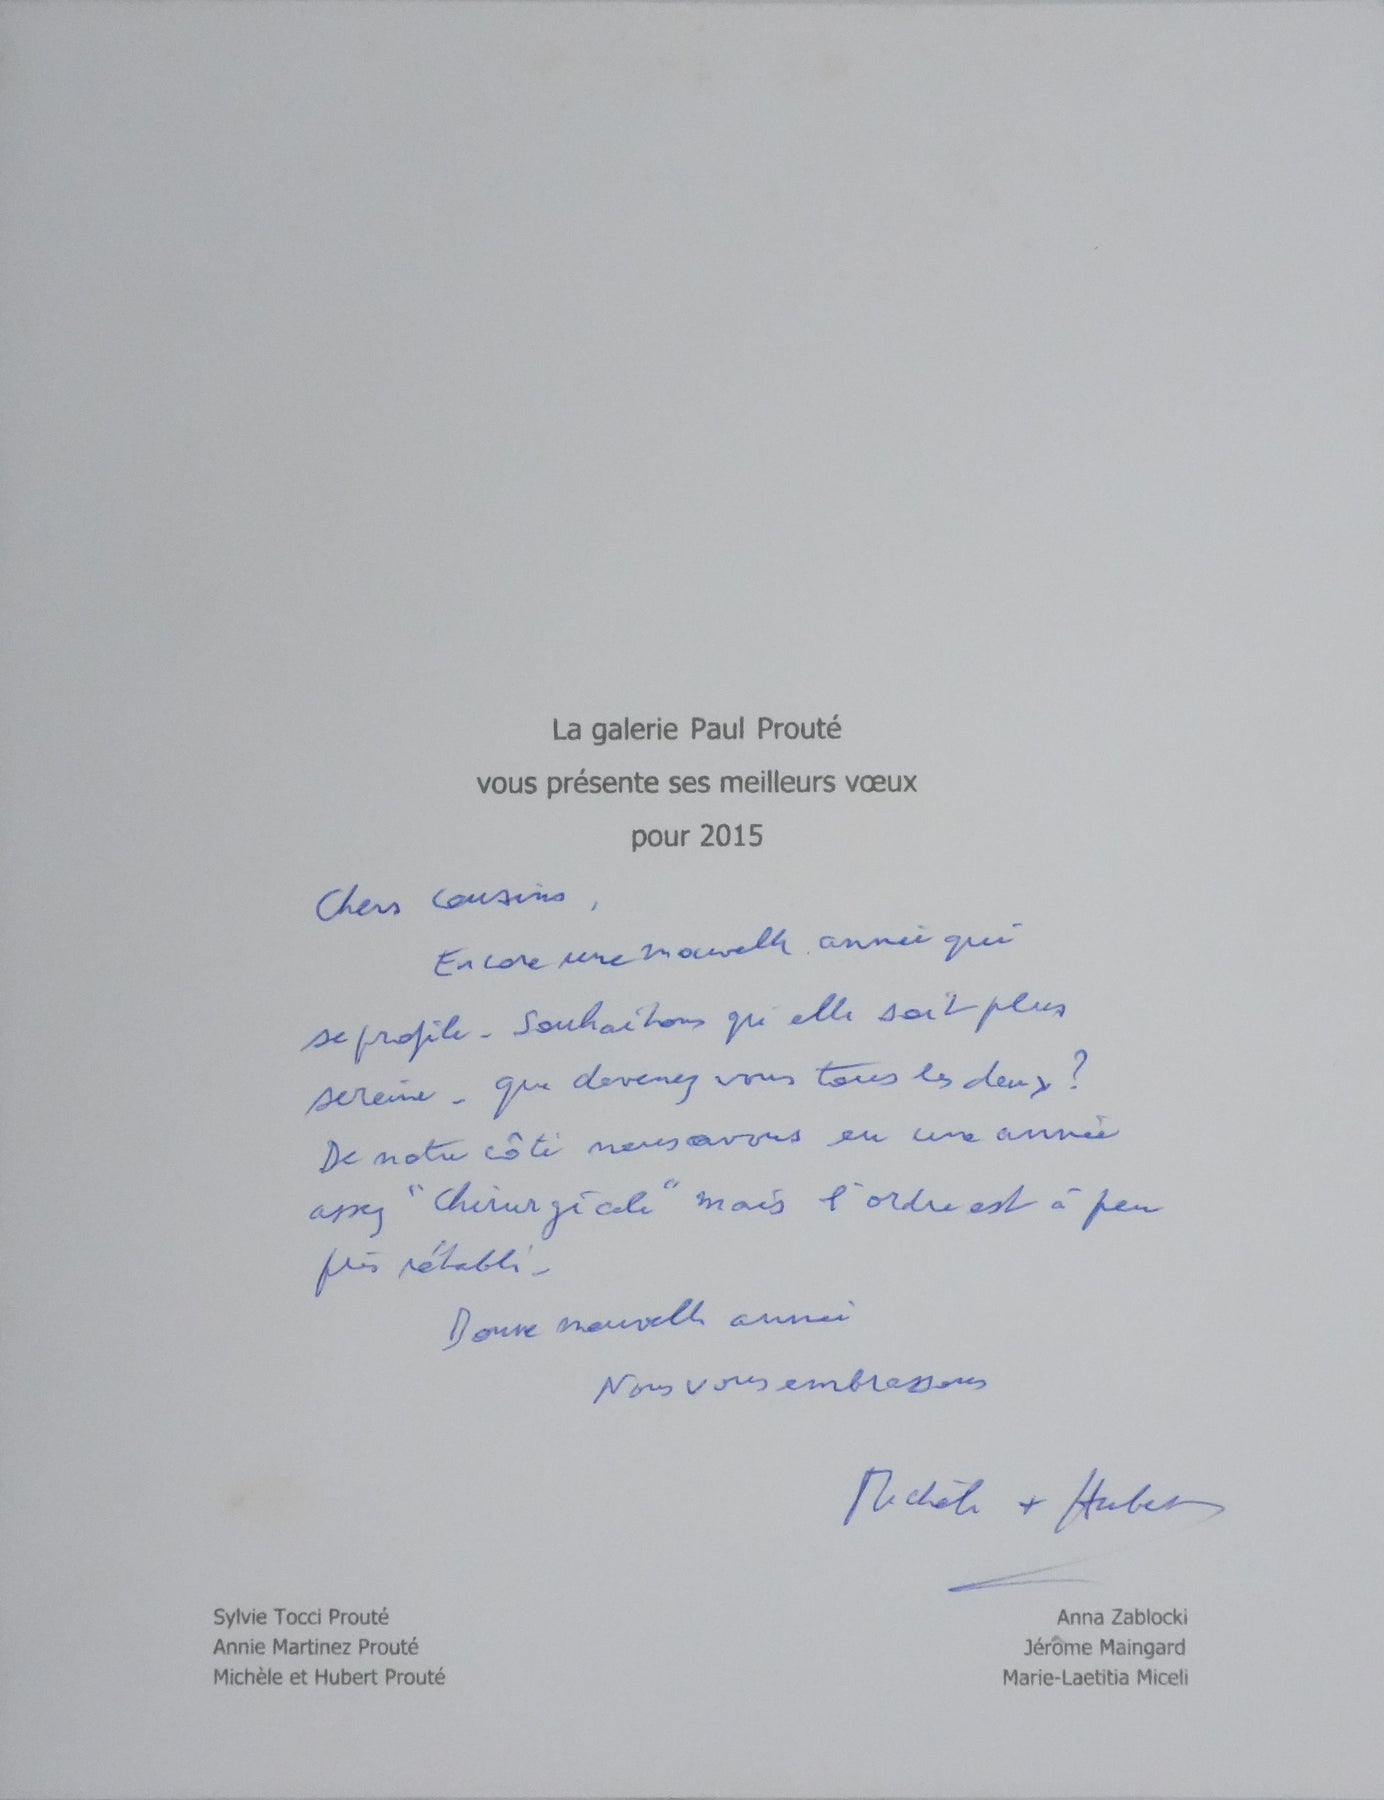 La galerie Paul Prouté
vous présente ses meilleurs vœux
pour 2015
Chers cousins,
Encore une nouvelle année qui
se profile - Souhaitons qu'elle soit plus
sereine - que devenez vous tous les deux ?
De notre côté nous avons eu une année
assez "chirurgicale" mais l'ordre est à peu
près rétabli -
Bonne nouvelle année
Nous vous embrassons
Michèle + Hubert
Sylvie Tocci Prouté
Annie Martinez Prouté
Michèle et Hubert Prouté
Anna Zablocki
Jérôme Maingard
Marie-Laetitia Miceli